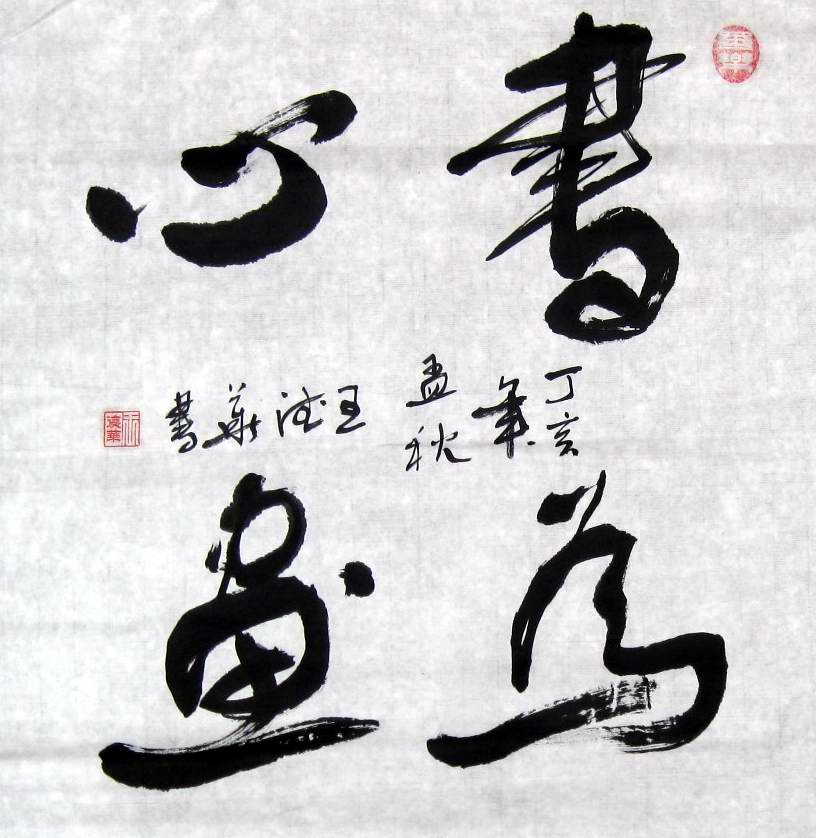 書為
心畫
丁亥
年
孟秋
王德華書